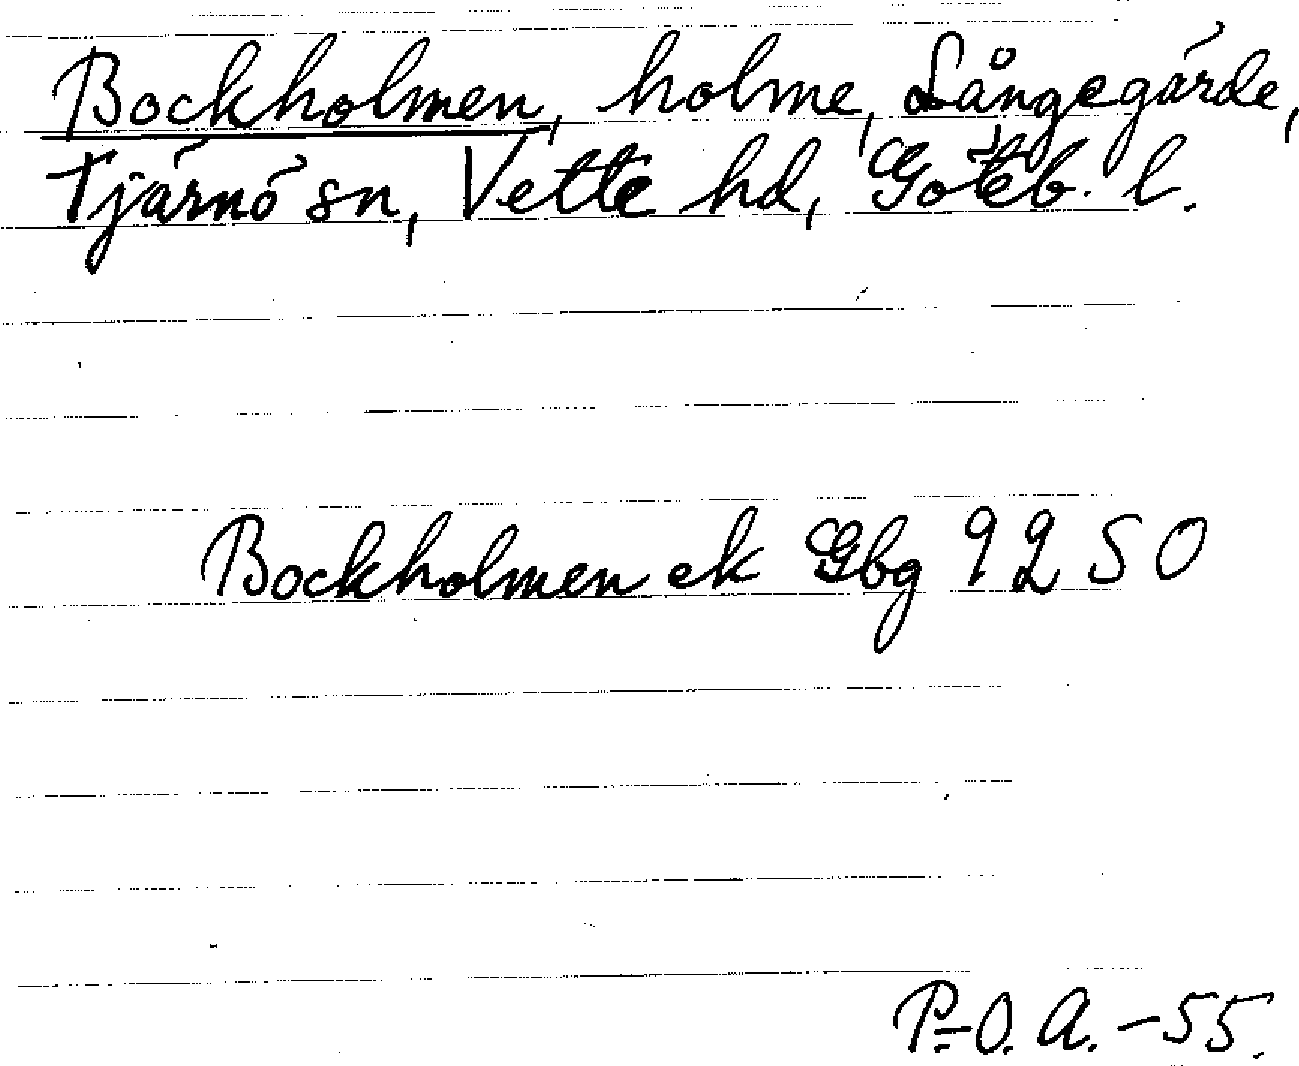 Bockholmen, holme, Långegärde,
Tjärnö sn, Vette hd, Göteb. l.
Bockholmen ek Gbg 9250
P.-O. A. -55.